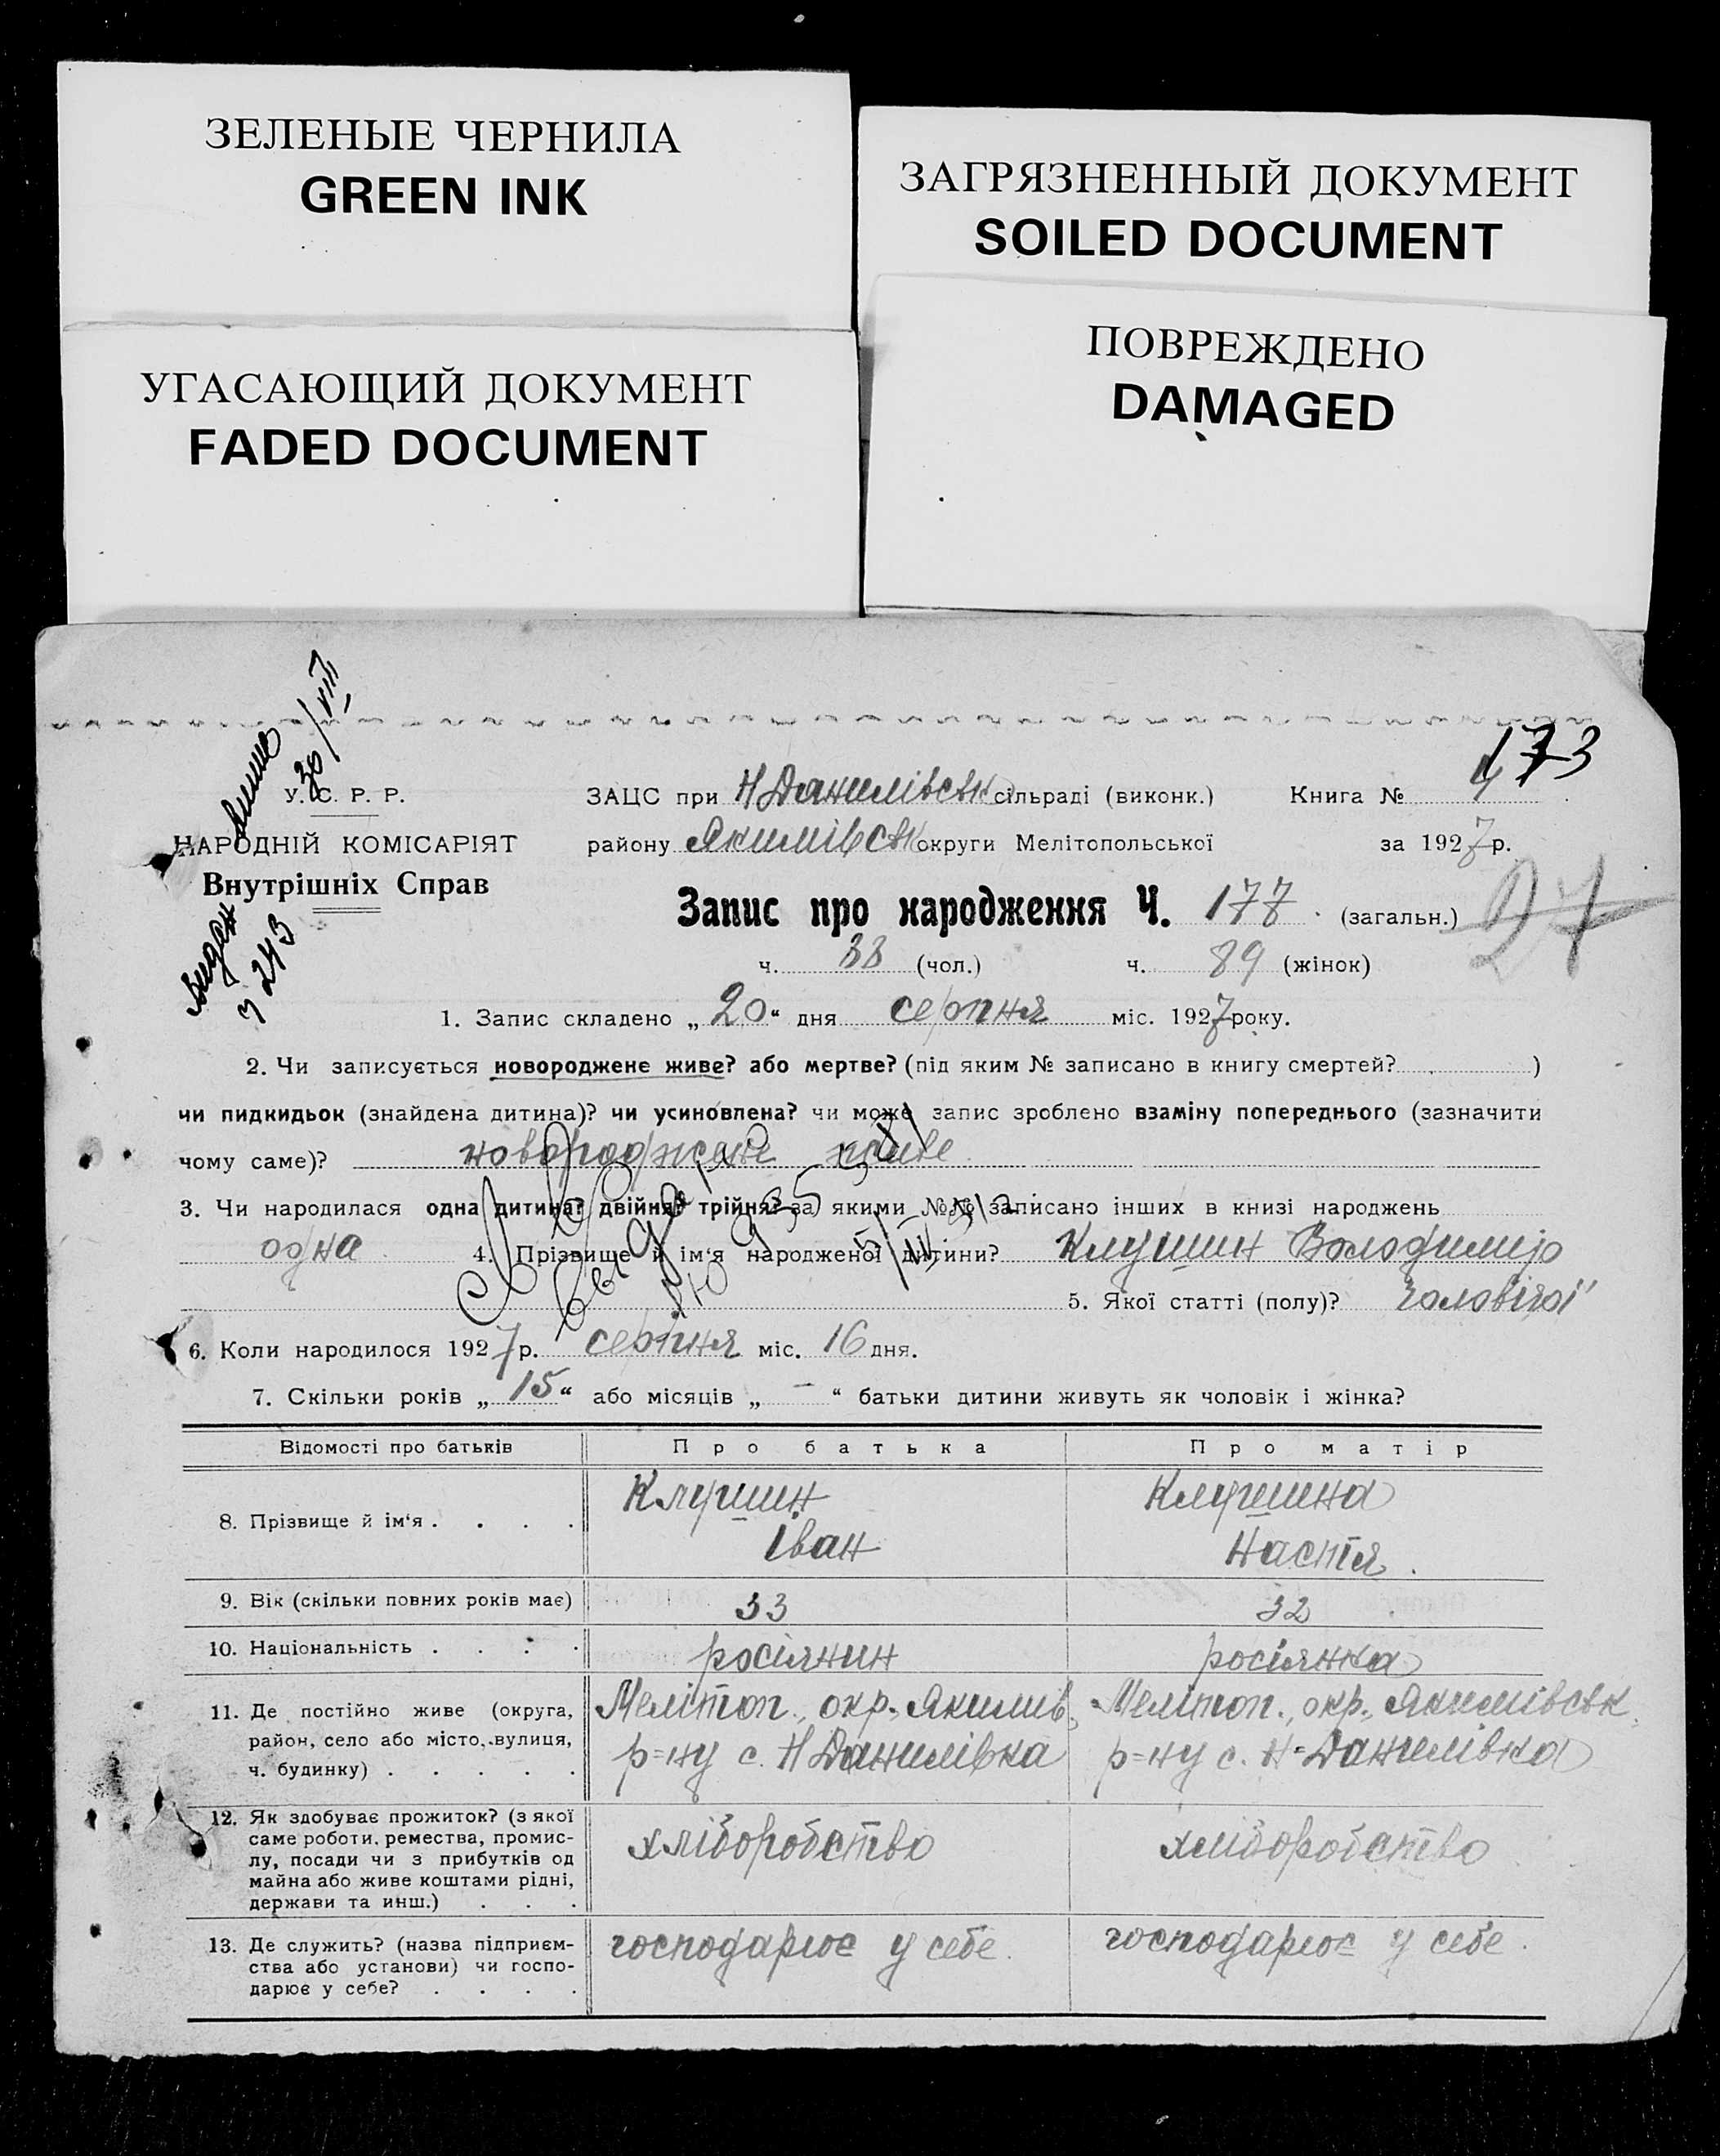 ЗЕЛЕНЫЕ ЧЕРНИЛА
GREEN INK
ЗАГРЯЗНЕННЫЙ ДОКУМЕНТ
SOILED DOCUMENT
УГАСАЮЩИЙ ДОКУМЕНТ
FADED DOCUMENT
ПОВРЕЖДЕНО
DAMAGED
173
30/VIII
У. С. Р. Р.
НАРОДНІЙ КОМІСАРІЯТ
Внутрішніх Справ
№ 243
ЗАЦС при Н Данилівськ сільраді (виконк.) Книга № 4
району Якимівськ округи Мелітопольської за 1927 р.
Запис про народження Ч. 177 (загальн.) 27
ч. 88 (чол.) ч. 89 (жінок)
1. Запис складено „ 20 “ дня серпня міс. 1927 року.
2. Чи записується новороджене живе? або мертве? (під яким № записано в книгу смертей? )
чи пидкидьок (знайдена дитина)? чи усиновлена? чи може запис зроблено взаміну попереднього (зазначити
чому саме)? новороджене живе
3. Чи народилася одна дитина? двійня? трійня? за якими №№ записано інших в книзі народжень
одна 4. Прізвище й ім'я народженої дитини? Клушин Володимир
5. Якої статті (полу)? чоловічої
6. Коли народилося 1927 р. серпня міс. 16 дня.
7. Скільки років „ 15 “ або місяців „ — “ батьки дитини живуть як чоловік і жінка?
Відомості про батьків Про батька Про матір
8. Прізвище й ім'я . . . . Клушин Іван Клушина Настя
9. Вік (скільки повних років має) 33 32
10. Національність . . . . росіянин росіянка
11. Де постійно живе (округа, Мелітоп., окр., Якимів. Мелітоп., окр., Якимівськ.
район, село або місто, вулиця, р=ну с. Н Данилівка р=ну с. Н=Данилівка
ч. будинку) . . . . .
12. Як здобуває прожиток? (з якої
саме роботи, ремества, промис- хліборобство хліборобство
лу, посади чи з прибутків од
майна або живе коштами рідні,
держави та инш.) . . .
13. Де служить? (назва підприєм- господарює у себе. господарює у себе.
ства або установи) чи госпо-
дарює у себе? . . . .